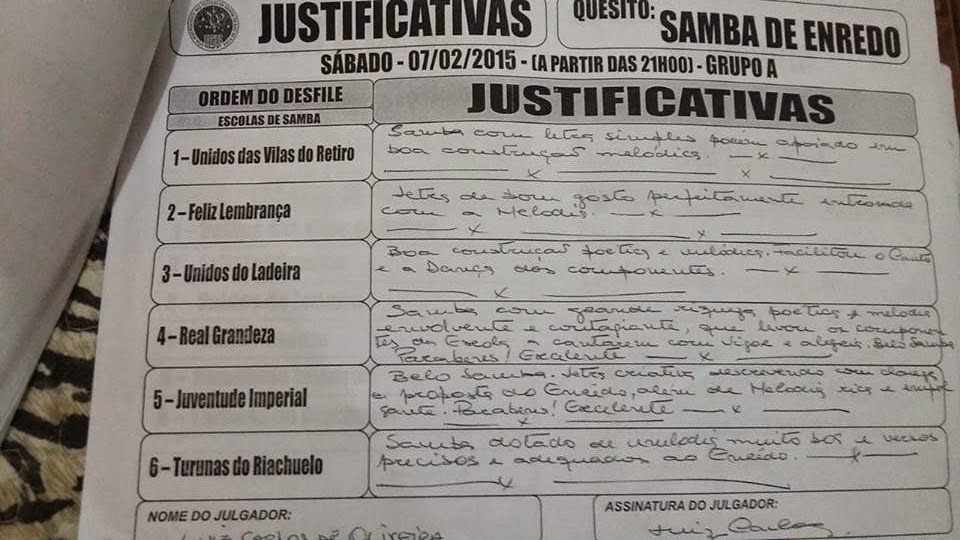 JUSTIFICATIVAS
QUESITO: SAMBA DE ENREDO
SÁBADO - 07/02/2015 - (A PARTIR DAS 21H00) - GRUPO A
ORDEM DO DESFILE
ESCOLAS DE SAMBA
JUSTIFICATIVAS
1 – Unidos das Vilas do Retiro
Samba com letra simples porém apoiado em
boa construção melódica. — x —
— x — x —
2 – Feliz Lembrança
Letra de bom gosto perfeitamente entrosada
com a Melodia. — x —
— x — x —
3 – Unidos do Ladeira
Boa construção poética e melódica. Facilitou o Canto
e a Dança dos componentes. — x —
— x —
4 – Real Grandeza
Samba com grande riqueza poética e melodia
envolvente e contagiante, que levou os componen
tes da Escola a cantarem com vigor e alegria. Belo Samba
Parabéns! Excelente — x —
5 – Juventude Imperial
Belo Samba. Letra criativa descrevendo com clareza
a proposta do Enredo, além de Melodia rica e
gante. Parabéns! Excelente — x —
— x —
6 – Turunas do Riachuelo
Samba dotado de melodia muito boa e versos
precisos e adequados ao Enredo. — x —
— x —
NOME DO JULGADOR:
LUIZ CARLOS DE OLIVEIRA
ASSINATURA DO JULGADOR:
Luiz Carlos